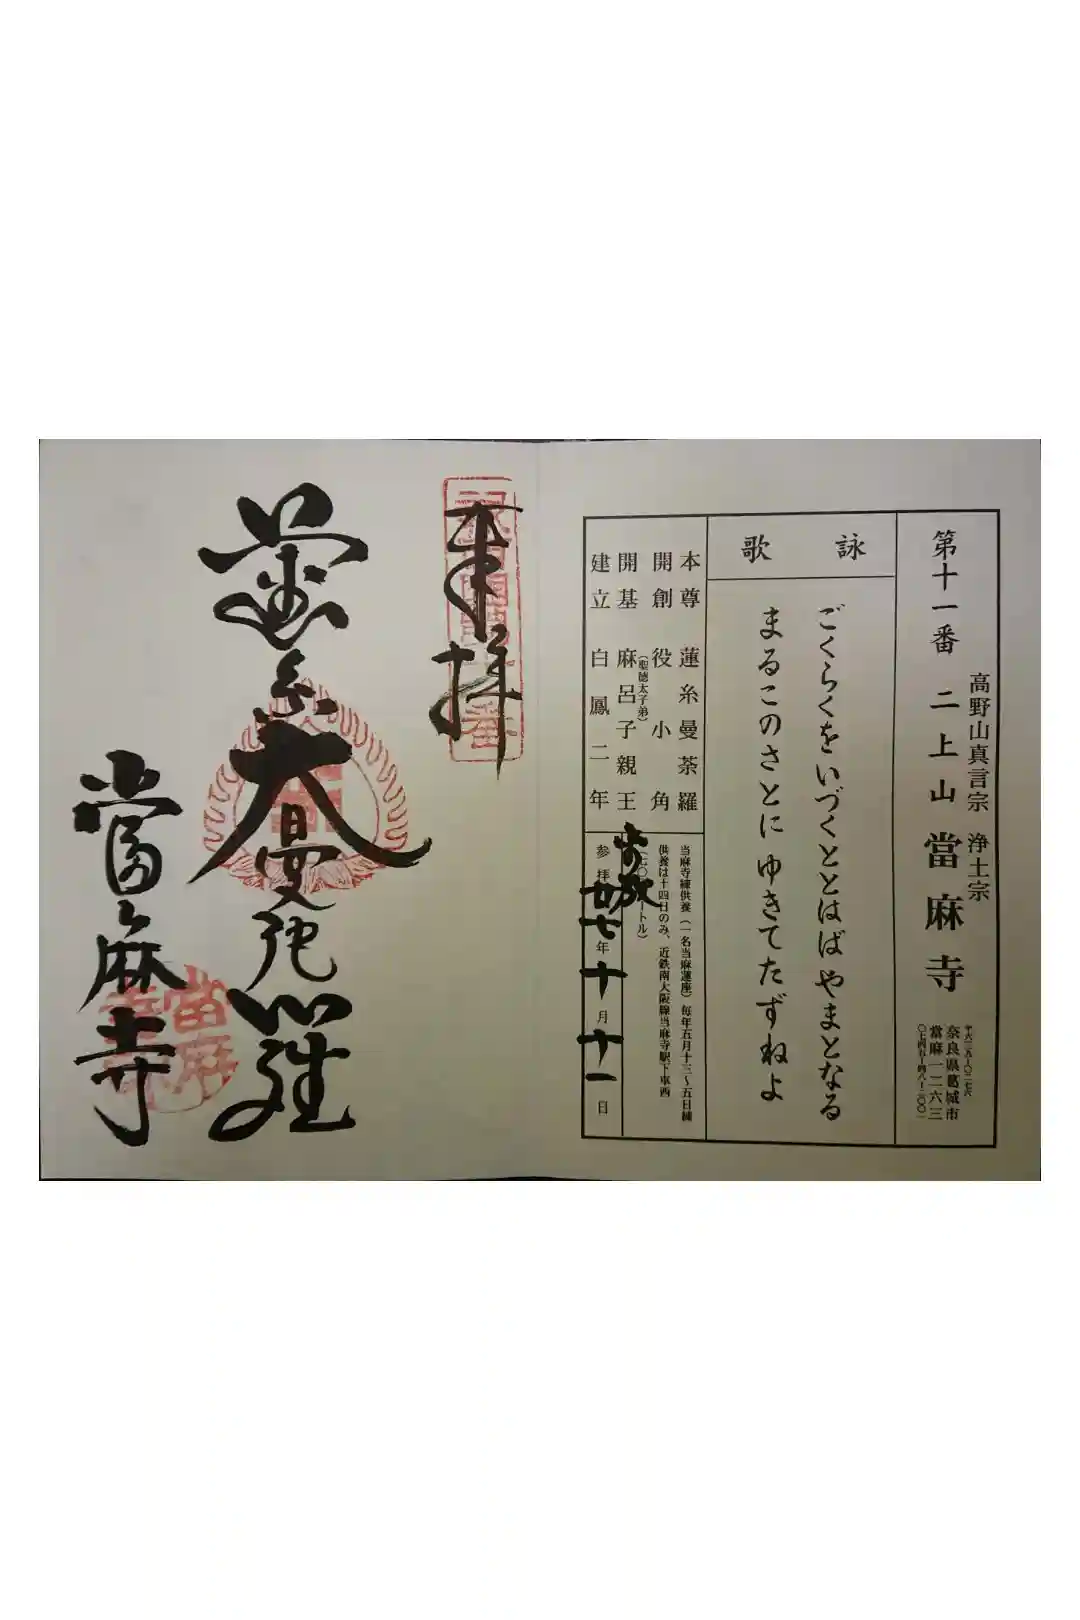 第十一番 二上山 當麻寺
高野山真言宗 浄土宗
奈良県葛城市
當麻一二六三
詠歌
ごくらくをいづくととはば やまとなる
まるこのさとに ゆきてたずねよ
本尊 蓮糸曼荼羅
開創 役小角
(聖徳太子弟)
開基 麻呂子親王
建立 白鳳二年
当麻寺練供養(一名当麻蓮座)毎年五月十三〜五日練
供養は十四日のみ、近鉄南大阪線当麻寺駅下車西
参拝 廿七年 十月 十一日
奉拝
蓮糸大曼陀羅
當麻寺
當麻